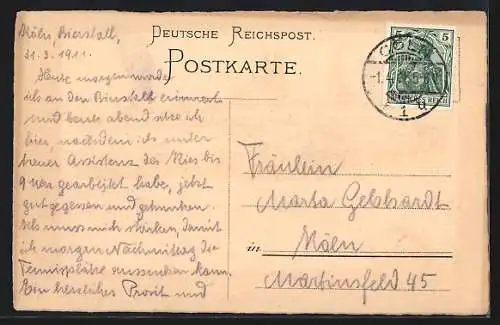 Köln, Bierstall,
31.3.1911.
DEUTSCHE REICHSPOST.
POSTKARTE.
Heute morgen wurde
ich an den Bierstall erinnert
und heute abend sitze ich
hier, nachdem ich unter
treuer Assistenz des Ries bis
9 Uhr gearbeitet habe, jetzt
gut gegessen und getrunken.
Ich muss mich stärken, damit
ich morgen Nachmittag die
Tennisplätze aussuchen kann.
Ein herzliches Prosit und
5 5
CÖLN
1
Fräulein
Marta Gebhardt
in Köln
Martinsfeld 45